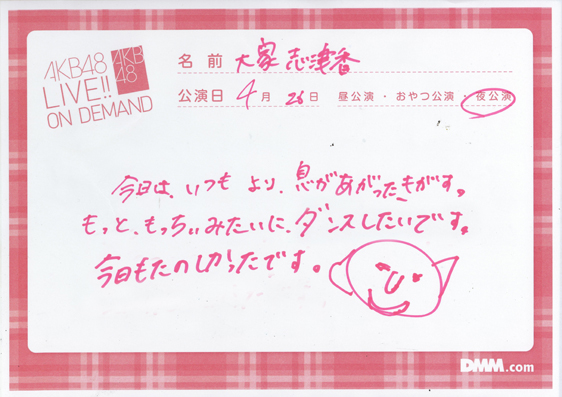 AKB48
LIVE!!
ON DEMAND
AKB
48
名前 大家志津香
公演日 4月 26日 昼公演・おやつ公演・夜公演
今日は、いつもより、息があがったきがす。
もっと、もっちぃみたいに、ダンスしたいです。
今日もたのしかったです。
DMM.com